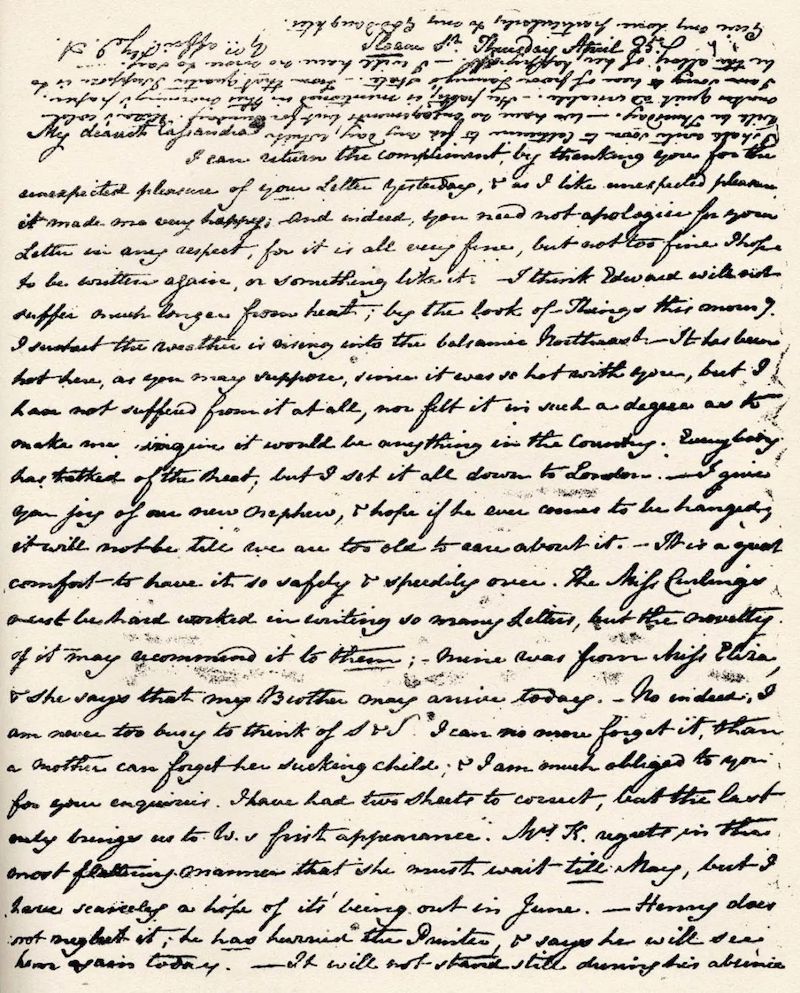 Sloane St. Thursday April 25.
My dearest Cassandra
I can return the compliment, by thanking you for the
unexpected pleasure of your Letter yesterday, & as I like unexpected pleasure,
it made me very happy; And indeed, you need not apologize for your
Letter in any respect, for it is all very fine, but not too fine I hope
to be written again, or something like it. — I think Edward will not
suffer much longer from heat; by the look of Things this morng.
I suspect the weather is rising into the balsamic Northeast. — It has been
hot here, as you may suppose, since it was so hot with you, but I
have not suffered from it at all, nor felt it in such a degree as to
make me imagine it would be anything in the Country. Everybody
has talked of the heat, but I set it all down to London. — I give
you joy of our new nephew, & hope if he ever comes to be hanged,
it will not be till we are too old to care about it. — It is a great
comfort to have it so safely & speedily over. The Miss Curlings
must be hard worked in writing so many Letters, but the novelty
of it may recommend it to them; — mine was from Miss Eliza,
& she says that my Brother may arrive today. — No indeed, I
am never too busy to think of S & S. I can no more forget it, than
a mother can forget her sucking child; & I am much obliged to you
for your enquiries. I have had two sheets to correct, but the last
only brings us to W.s first appearance. Mrs K. regrets in the
most flattering manner that she must wait till May, but I
have scarcely a hope of its being out in June. — Henry does
not neglect it; he has hurried the Printer, & says he will see
him again today. — It will not stand still during his absence
I shall write soon to Catherine to fix my day, which
will be Thursday. — We have no engagements but for Sunday. Eliza's cold
makes quiet adviseable. — Her party is mentioned in this morning's paper.
I am sorry to hear of poor Fanny's state. — From that quarter I suppose is to
be the alloy of her happiness. — I will have no more to say. —
Yrs affecly J. A
Give my Love particularly to my God-Daughter.